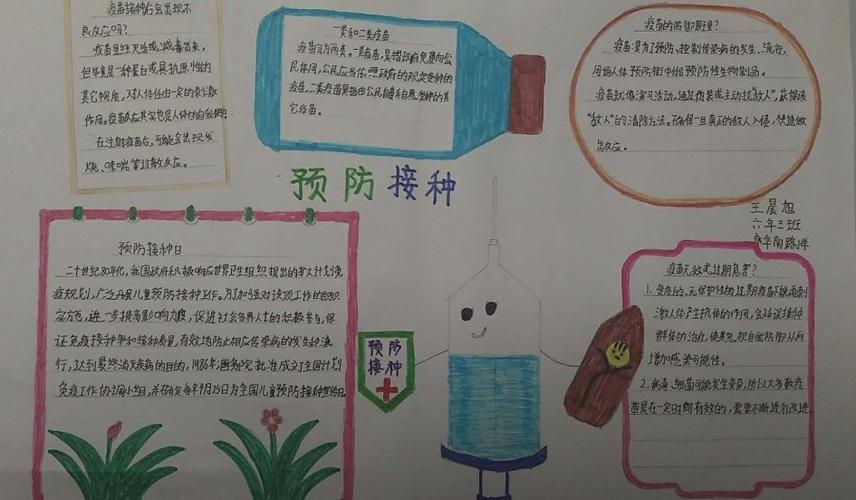 疫苗接种后会出现不
良反应吗?
疫苗虽经灭活或减毒处理,
但毕竟是一种蛋白或具抗原性的
其它物质,对人体仍有一定的刺激
作用。疫苗反应其实也是人体的自
在注射疫苗后,可能会出现发
烧、哮喘等过敏反应。
一类和二类疫苗
疫苗分为两类。一类疫苗,是指政府免费向公
民提供,公民应当依照政府的规定受种的
疫苗,二类疫苗是指由公民自费并自愿受种的其
它疫苗。
疫苗的防御原理?
疫苗是为了预防、控制传染病的发生、流行,
用于人体预防接种的预防性生物制品。
疫苗就像演习活动,通过伪装成主动找“敌人”,获得该
“敌人”的消除方法。确保一旦真正的敌人入侵,快速做
出反应。
预防接种
王晨旭
六年三班
南路小学
预防接种日
二十世纪80年代,我国政府积极响应世界卫生组织提出的扩大计划免
疫规划,广泛开展儿童预防接种工作。为了加强对该项工作的组织
实施,进一步提高影响力度,促进社会各界人士的积极参与,保
证免疫接种率和接种质量,有效地防止相应传染病的发生和流
行,达到最终消灭疾病的目的,1986年,国务院批准成立了全国计划
免疫工作协调小组,并确定每年4月25日为全国儿童预防接种宣传日。
预防
接种
疫苗无效或过期危害?
1.变质的、无保护性的过期疫苗不能再刺
激人体产生抗体的作用,会延误接种
群体的治疗,使其
增加感染可能性。
2.病毒、细菌可能发生变异,所以大多数疫
苗是在一定时间有效的,需要不断进行改进。